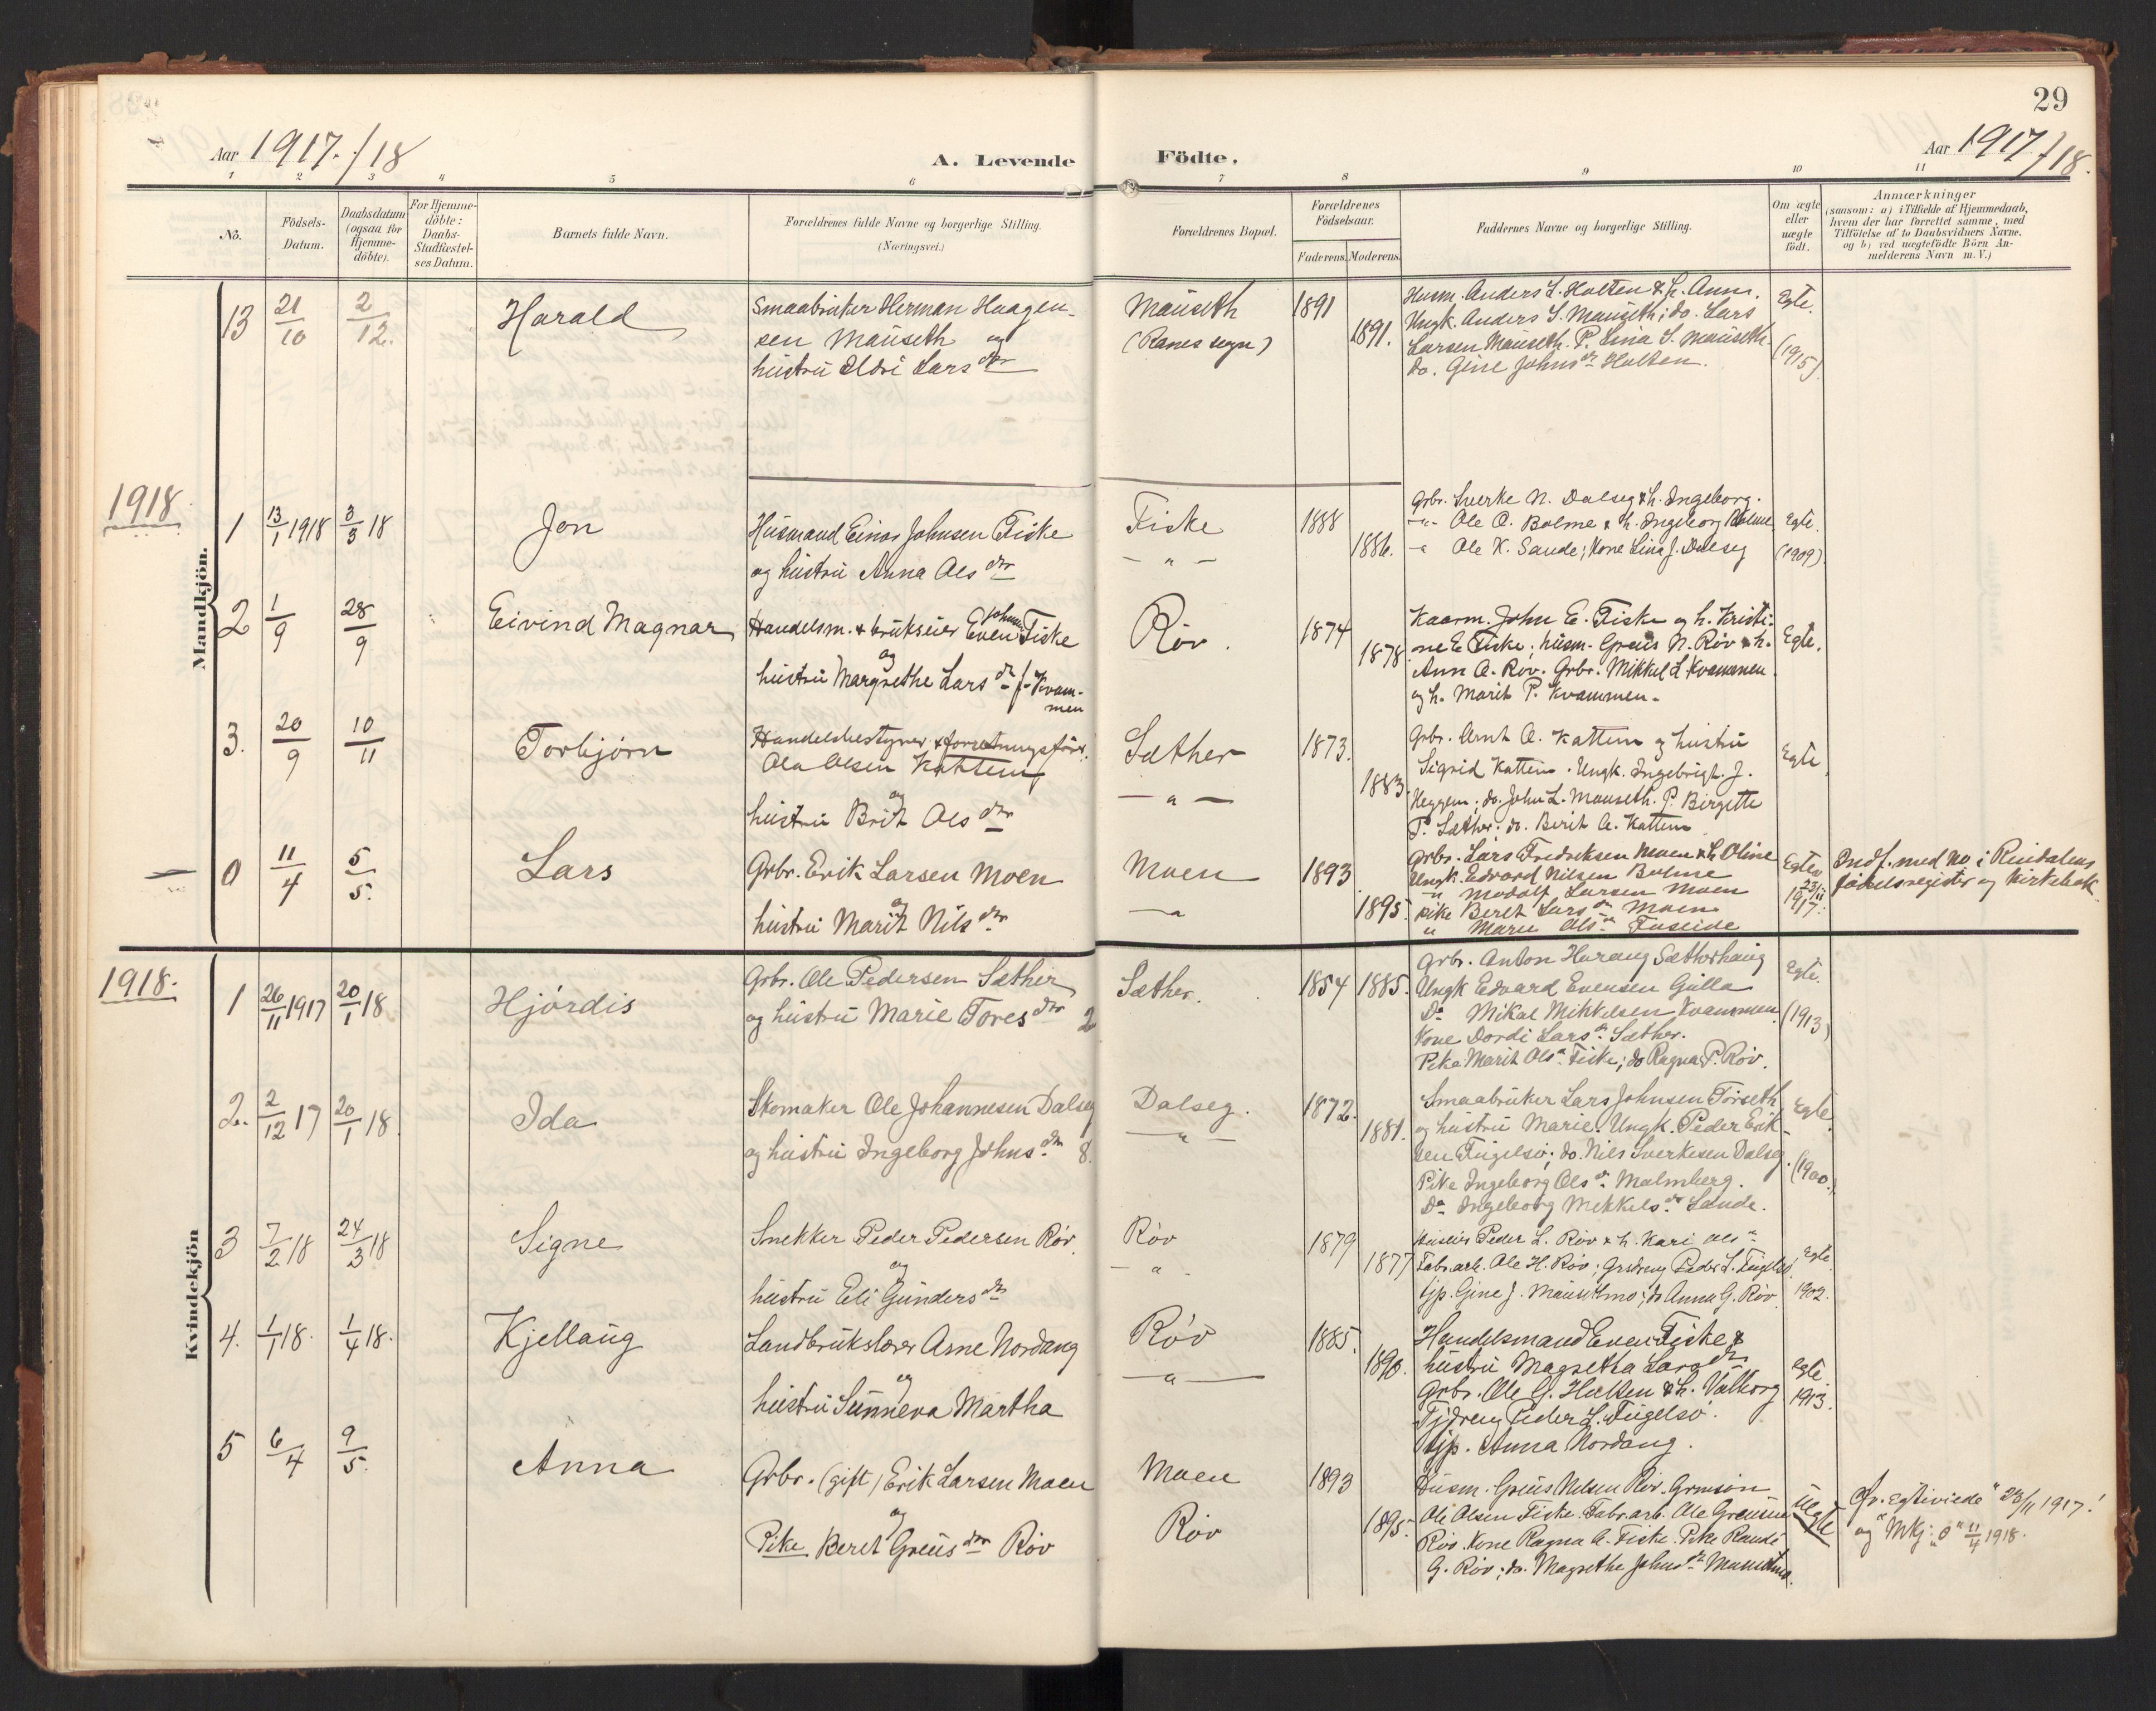 29
Aar 1917./18
A. Levende
Födte.
Aar 1917/18.
1 2 3 4 5 6 7 8 9 10 11
No.
Födsels-
Datum.
Daabsdatum
(ogsaa for
Hjemme-
döbte).
For Hjemme-
döbte:
Daabs-
Stadfæstel-
ses Datum.
Barnets fulde Navn.
Forældrenes fulde Navne og borgerlige Stilling.
(Næringsvei.)
Forældrenes Bopæl.
Forældrenes
Födselsaar.
Faderens. Moderens.
Faddernes Navne og borgerlige Stilling.
Om ægte
eller
uægte
födt.
Anmærkninger
(saasom: a) i Tilfælde af Hjemmedaab,
hvem der har forrettet samme, med
Tilföielse af to Daabsvidners Navne.
og b) ved uægtefödte Börn An-
melderens Navn m.V.)
Mandkjön.
13 21/10 2/12. Harald
Smaabruker Herman Haagen-
sen Mauseth og
hustru Eldri Larsdtr
Mauseth
(Ranes sogn)
1891
1891.
Husm. Anders L. Holten & h. Ann.
Ungk. Anders S. Mauseth; do. Lars
Larsen Mauseth. P. Lina S. Mauseth.
do. Gine Johnsdr Holten.
Egte.
(1915)
1918.
1 13/1 1918 3/3 18 Jon
Husmand Einar Johnsen Fiske
og hustru Anna Olsdtr
Fiske
- " -
1888
1886.
Grbr. Sverke N. Dalseg & h. Ingeborg.
-"- Ole O. Bolme & h. Ingeborg Bolme
-" Ole K. Sande; Kone Lina J. Dalseg
Egte.
(1909).
2 1/9 28/9 Eivind Magnar
Handelsm. & brukseier Even Johnsen Fiske
og
hustru Margrethe Larsdr f. Kvam-
men
Röv.
1874
1878
Kaarm. John E. Fiske og h. Kristi-
ne E. Fiske; husm. Greus N. Röv & h.
Ann O. Röv. Grbr. Mikkel L Kvammen
og h. Marit P. Kvammen.
Egte.
3. 20/9 10/11 Torbjörn
Handelsbestyrer & forretningsförer
Ola Olsen Kattem
og
hustru Brit Olsdtr
Sæther
- " -
1873.
1883.
Grbr. Arnt O. Kattem og hustru
Sigrid Kattem. Ungk. Ingebrigt J.
Heggem; do. John L. Mauseth. P. Birgitte
P. Sæther; do. Berit A. Kattem
Egte.
0 11/4 5/5. Lars
Grbr. Erik Larsen Moen
og
hustru Marit Nilsdtr
Moen
- "
1893
1895.
Grbr. Lars Fredriksen Moen & h Oline
Ungk. Edvard Nilsen Bolme
" Modolf Larsen Moen
Pike Beret Larsdr Moen
" Marie Olsdr Fuseide
Egtev
23/11
1917.
Indf. med No i Rindalens
födselsregister og kirkebok
1918.
Kvindekjön
1 26/11 1917 20/1 18. Hjördis
Grbr. Ole Pedersen Sæther
og hustru Marie Toresdtr 2
Sæther.
1854 1885.
Grbr. Anton Haraug Sætherhaug
Ungk Edvard Evensen Gulla
Do Mikal Mikkelsen Kvammen
Kone Dordi Larsdr Sæther.
Pike Marit Olsdr Fiske; do Ragna P. Röv.
Egte.
(1913)
2. 2/12 17 20/1 18. Ida
Skomaker Ole Johannesen Dalseg
og hustru Ingeborg Johnsdtr 8.
Dalseg.
- " -
1872.
1881.
Smaabruker Lars Johnsen Torseth
og hustru Marie. Ungk. Peder Erik-
sen Fugelsö; do. Nils Sverkesen Dalseg.
Pike Ingeborg Olsdr Malmberg.
Do Ingeborg Mikkelsdr Sande.
Egte.
(1900.)
3 7/2 18 24/3 18 Signe
Snekker Peder Pedersen Röv.
og
hustru Eli Gundersdtr
Röv
- " -
1879
1877
Peder L. Röv & h. Kari Olsdr
Fabr.arb. Ole H. Röv; Grdreng Peder L. Fugelsö.
tjp. Gine J. Mausethmo; do Anna G. Röv.
Egte
1902.
4. 1/1 18. 1/4 18. Kjellaug
Landbrukslærer Arne Nordang
og
hustru Sunneva Martha
Röv
- " -
1885.
1890.
Handelsmand Even Fiske &
hustru Magretha Larsdtr
Grbr. Ole G. Holten & h. Valborg
Tjdreng Peder L. Fugelsö.
tjp. Anna Nordang.
Egte
1913.
5 6/4 9/5. Anna
Grbr. (gift) Erik Larsen Moen
og
Pike Beret Greusdtr Röv
Moen
Röv
1893
1895.
Husm. Greus Nilsen Röv. Grmsön
Ole Olsen Fiske. Fabr.arb. Ole Greusen
Röv. Kone Ragna A. Fiske. Pike Randi
G. Röv; do. Magrethe Johnsdr Mausethmo.
Uegte
Cfr. Egteviede " 23/11 1917!
og "Mkj: 0" 11/4 1918.